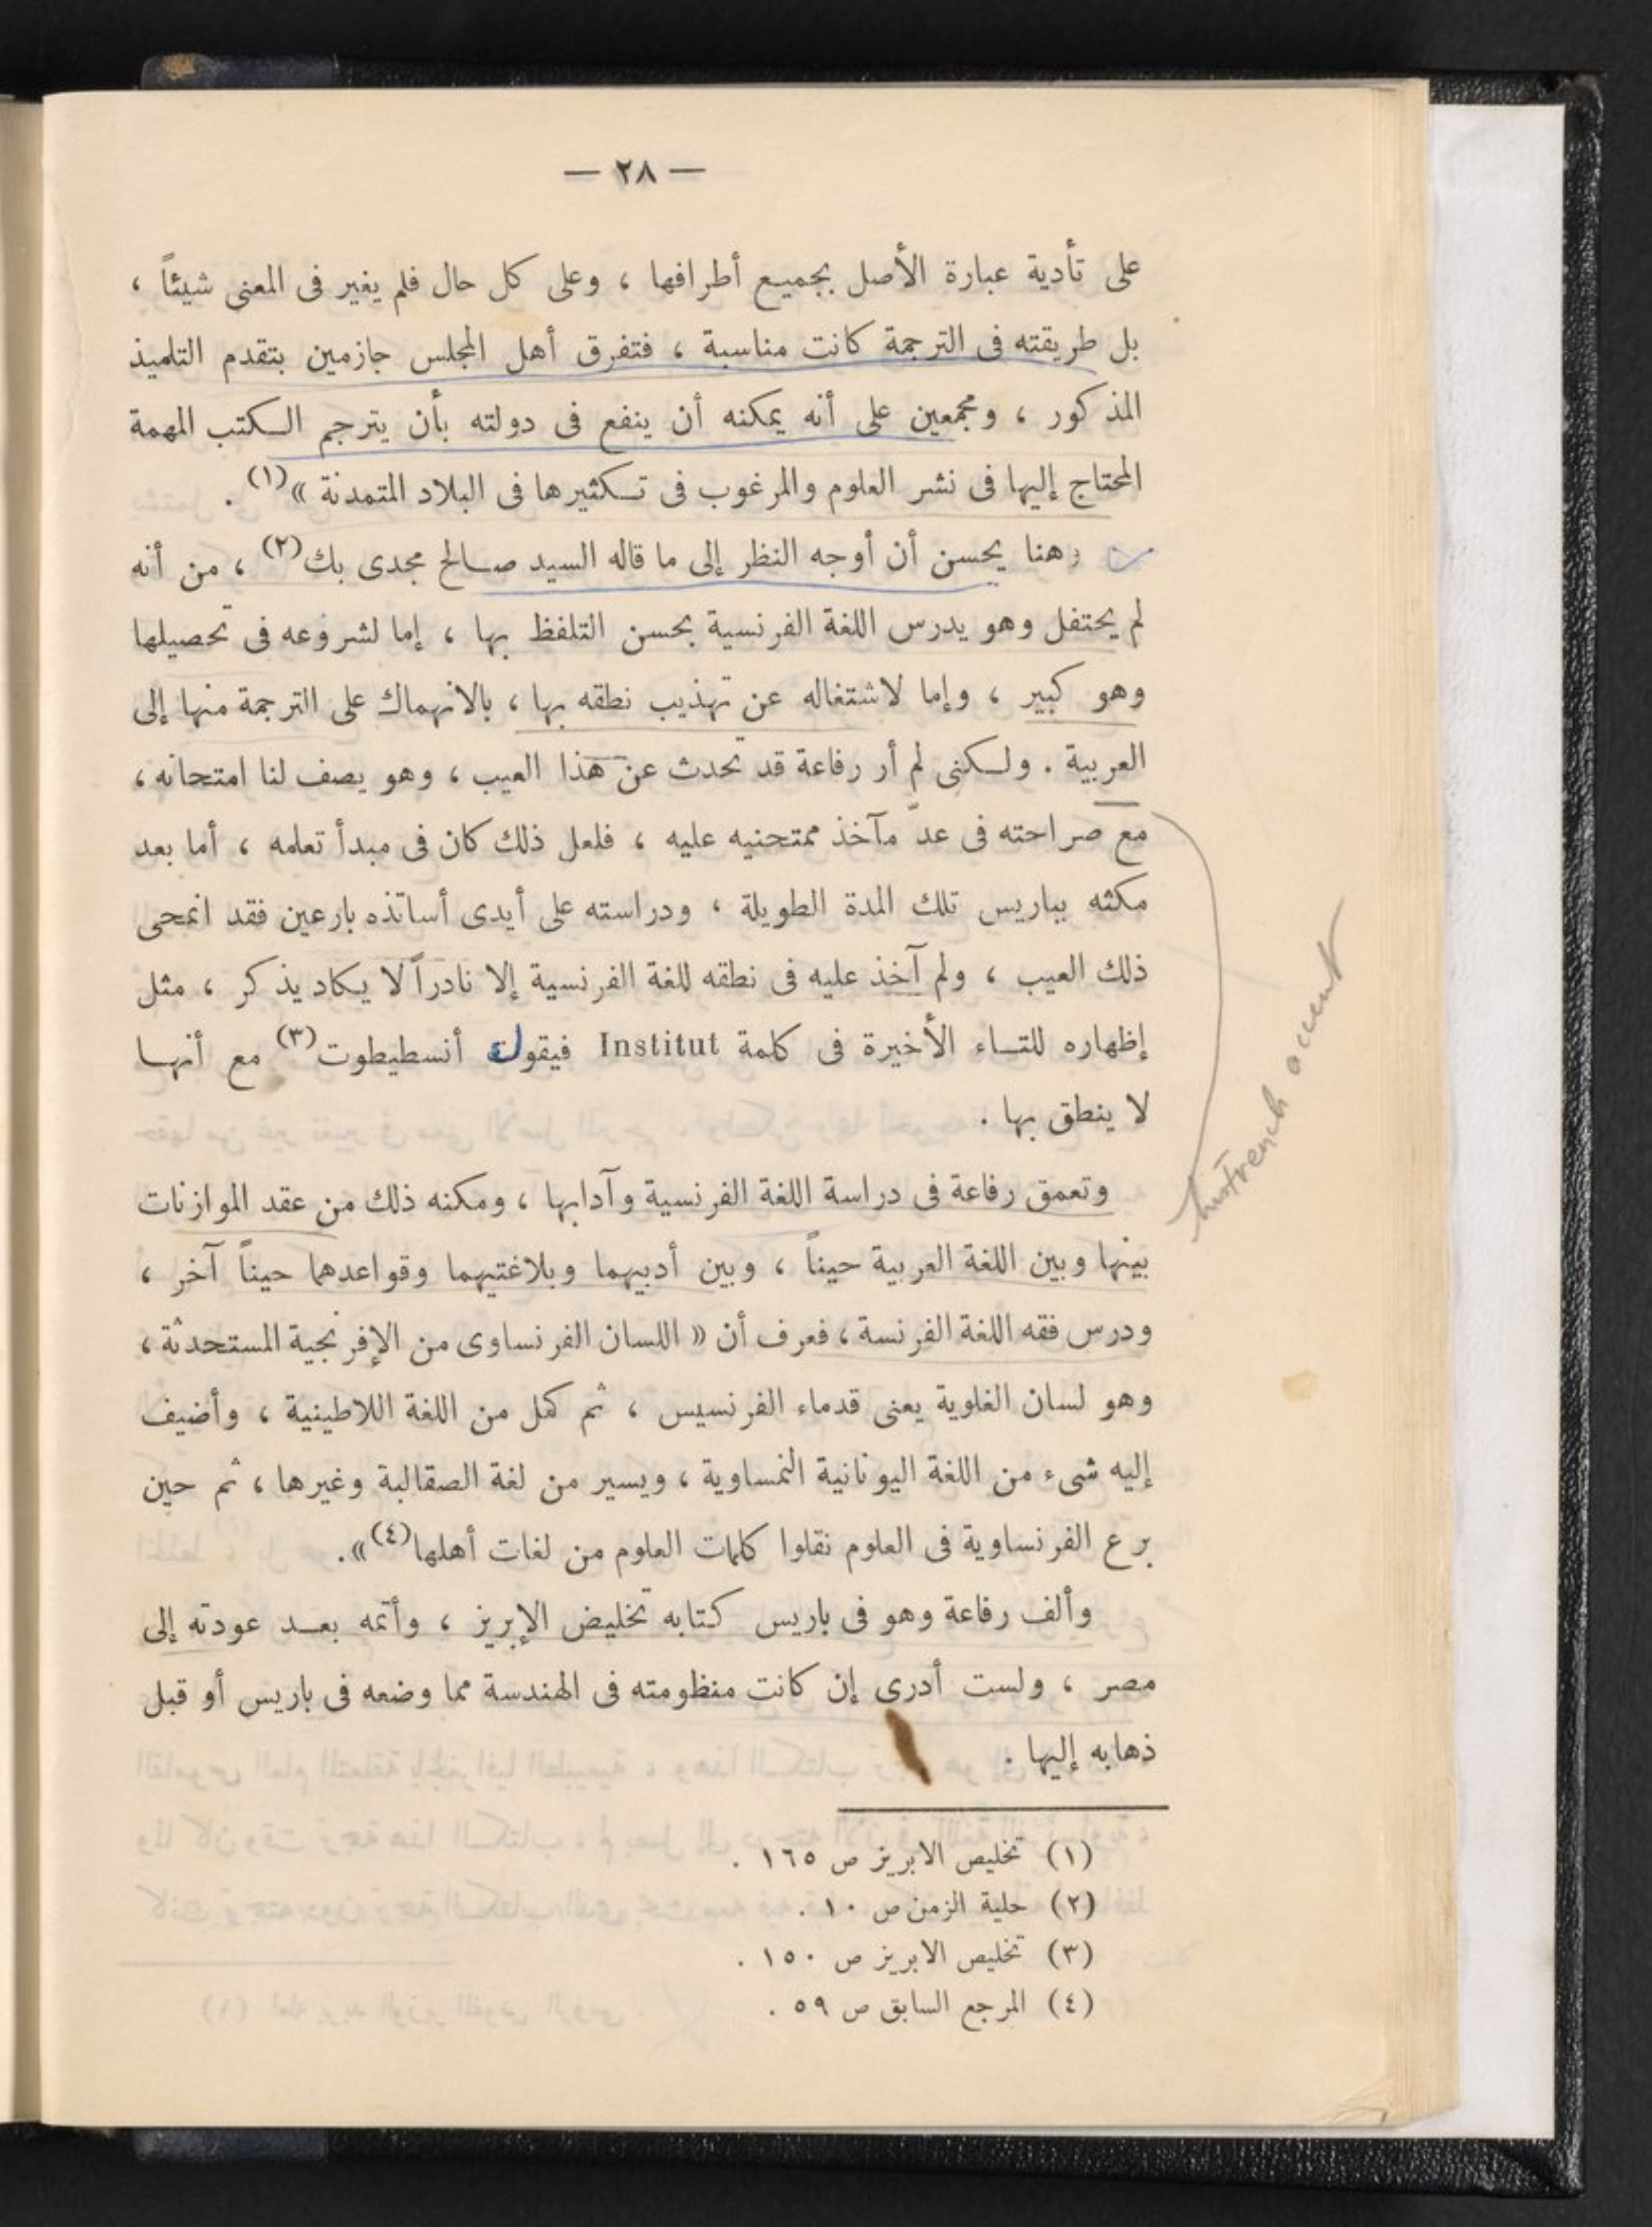 — ٢٨ —
على تأدية عبارة الأصل بجميع أطرافها ، وعلى كل حال فلم يغير فى المعنى شيئاً ،
بل طريقته فى الترجمة كانت مناسبة ، فتفرق أهل المجلس جازمين بتقدم التلميذ
المذكور ، ومجمعين على أنه يمكنه أن ينفع فى دولته بأن يترجم الكتب المهمة
المحتاج إليها فى نشر العلوم والمرغوب فى تكثيرها فى البلاد المتمدنة »(١) .
وهنا يحسن أن أوجه النظر إلى ما قاله السيد صالح مجدى بك(٢) ، من أنه
لم يحتفل وهو يدرس اللغة الفرنسية بحسن التلفظ بها ، إما لشروعه فى تحصيلها
وهو كبير ، وإما لاشتغاله عن تهذيب نطقه بها ، بالانهماك على الترجمة منها إلى
العربية . ولكنى لم أر رفاعة قد تحدث عن هذا العيب ، وهو يصف لنا امتحانه ،
مع صراحته فى عدّ مآخذ ممتحنيه عليه ، فلعل ذلك كان فى مبدأ تعلمه ، أما بعد
مكثه بباريس تلك المدة الطويلة ، ودراسته على أيدى أساتذه بارعين فقد انمحى
ذلك العيب ، ولم آخذ عليه فى نطقه للغة الفرنسية إلا نادراً لا يكاد يذكر ، مثل
إظهاره للتاء الأخيرة فى كلمة Institut فيقول أنسطيطوت(٣) مع أنها
لا ينطق بها .
his French accent
وتعمق رفاعة فى دراسة اللغة الفرنسية وآدابها ، ومكنه ذلك من عقد الموازنات
بينها وبين اللغة العربية حيناً ، وبين أدبيهما وبلاغتيهما وقواعدهما حيناً آخر ،
ودرس فقه اللغة الفرنسة ، فعرف أن « اللسان الفرنساوى من الإفرنجية المستحدثة ،
وهو لسان الغلوية يعنى قدماء الفرنسيس ، ثم كمل من اللغة اللاطينية ، وأضيف
إليه شىء من اللغة اليونانية النمساوية ، ويسير من لغة الصقالبة وغيرها ، ثم حين
برع الفرنساوية فى العلوم نقلوا كلمات العلوم من لغات أهلها(٤) ».
وألف رفاعة وهو فى باريس كتابه تخليض الإبريز ، وأتمه بعد عودته إلى
مصر ، ولست أدرى إن كانت منظومته فى الهندسة مما وضعه فى باريس أو قبل
ذهابه إليها .
(١) تخليص الابريز ص ١٦٥ .
(٢) حلية الزمن ص ١٠ .
(٣) تخليص الابريز ص ١٥٠ .
(٤) المرجع السابق ص ٥٩ .